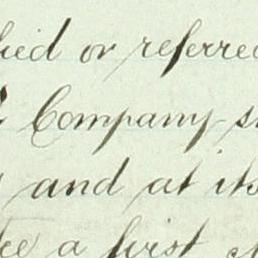 or referred
Company
and at its
a first